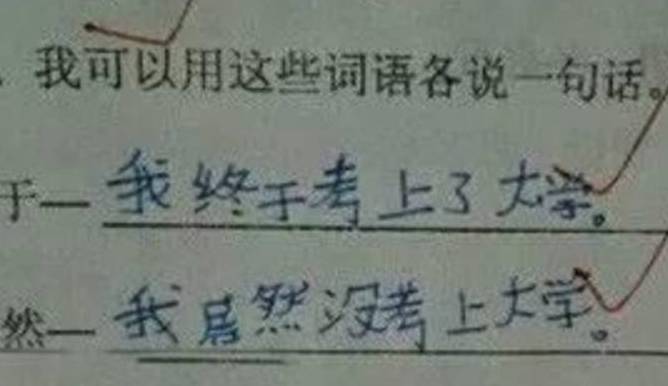 我可以用这些词语各说一句话。
于—我终于考上了大学。
然—我居然没考上大学。